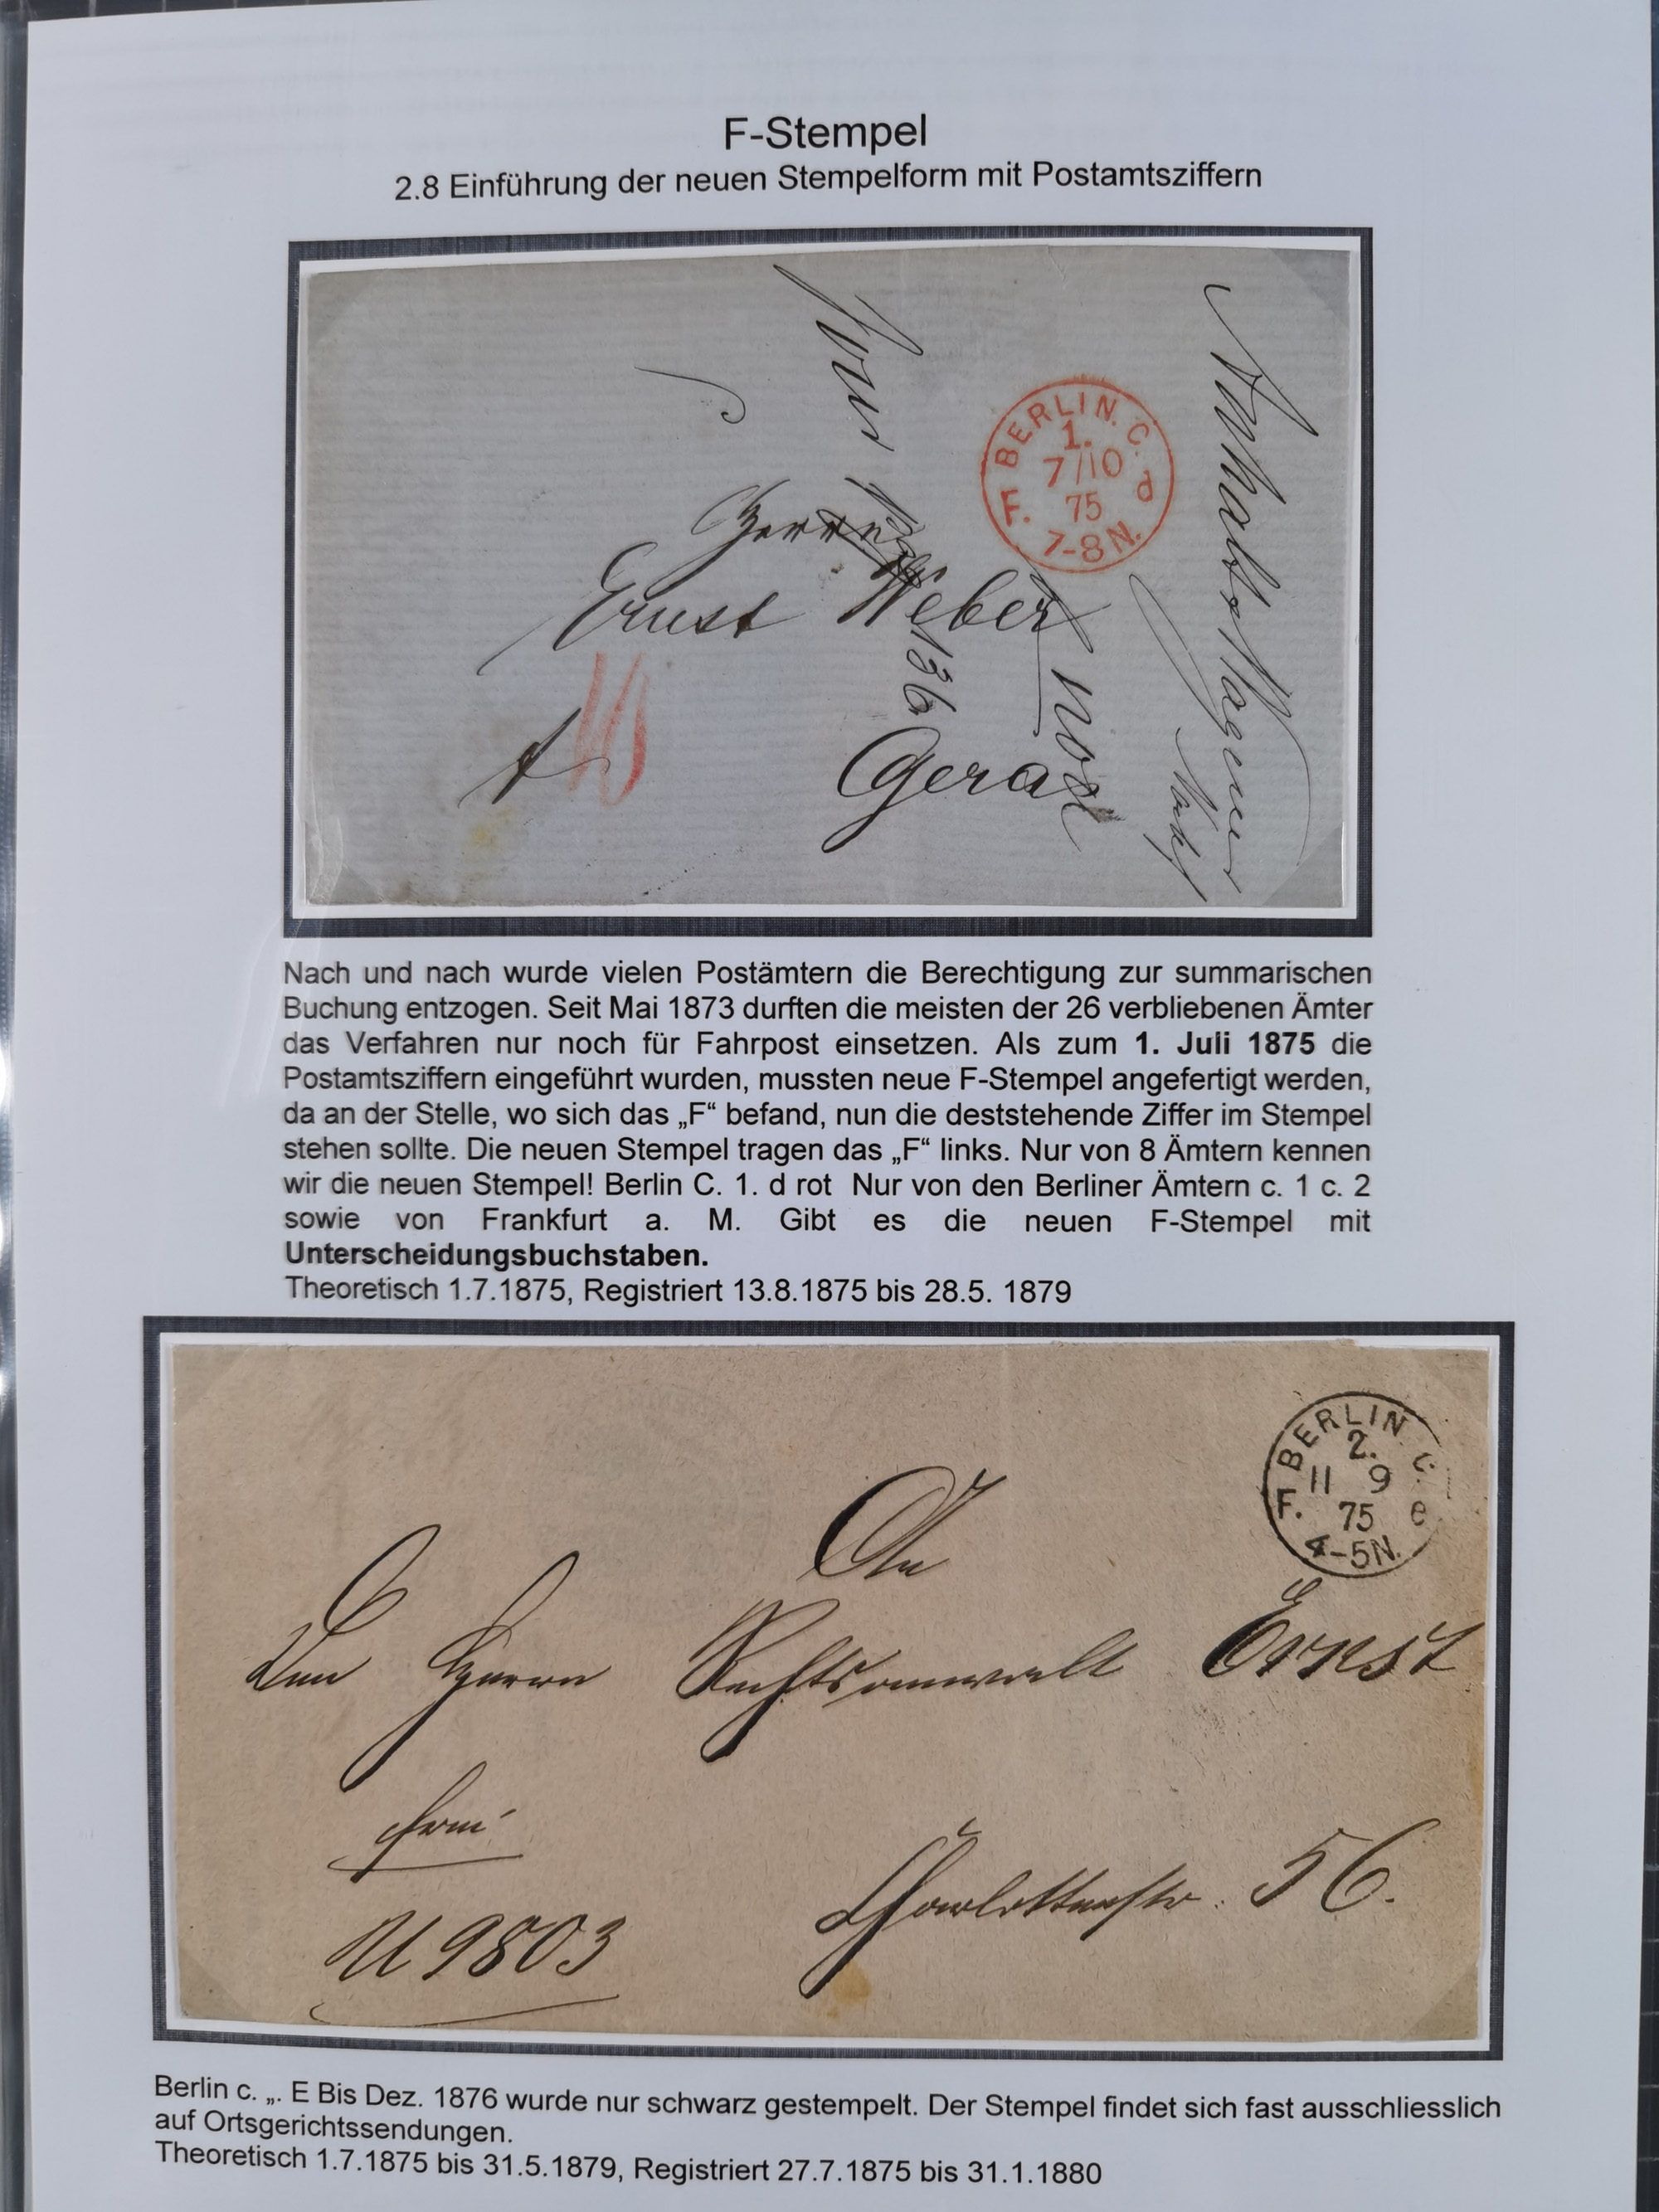 F-Stempel
2.8 Einführung der neuen Stempelform mit Postamtsziffern
BERLIN. C.
1.
7/10
F. 75 d
7-8 N.
Herrn
Ernst Weber
136
Gera
Nach und nach wurde vielen Postämtern die Berechtigung zur summarischen
Buchung entzogen. Seit Mai 1873 durften die meisten der 26 verbliebenen Ämter
das Verfahren nur noch für Fahrpost einsetzen. Als zum 1. Juli 1875 die
Postamtsziffern eingeführt wurden, mussten neue F-Stempel angefertigt werden,
da an der Stelle, wo sich das „F“ befand, nun die deststehende Ziffer im Stempel
stehen sollte. Die neuen Stempel tragen das „F“ links. Nur von 8 Ämtern kennen
wir die neuen Stempel! Berlin C. 1. d rot Nur von den Berliner Ämtern c. 1 c. 2
sowie von Frankfurt a. M. Gibt es die neuen F-Stempel mit
Unterscheidungsbuchstaben.
Theoretisch 1.7.1875, Registriert 13.8.1875 bis 28.5. 1879
BERLIN C.
2.
11 9
F. 75 e
4-5N.
An
Den Herrn Rechtsanwalt Ernst
frei
Charlottenstr. 56.
U 9803
Berlin c. „. E Bis Dez. 1876 wurde nur schwarz gestempelt. Der Stempel findet sich fast ausschliesslich
auf Ortsgerichtssendungen.
Theoretisch 1.7.1875 bis 31.5.1879, Registriert 27.7.1875 bis 31.1.1880